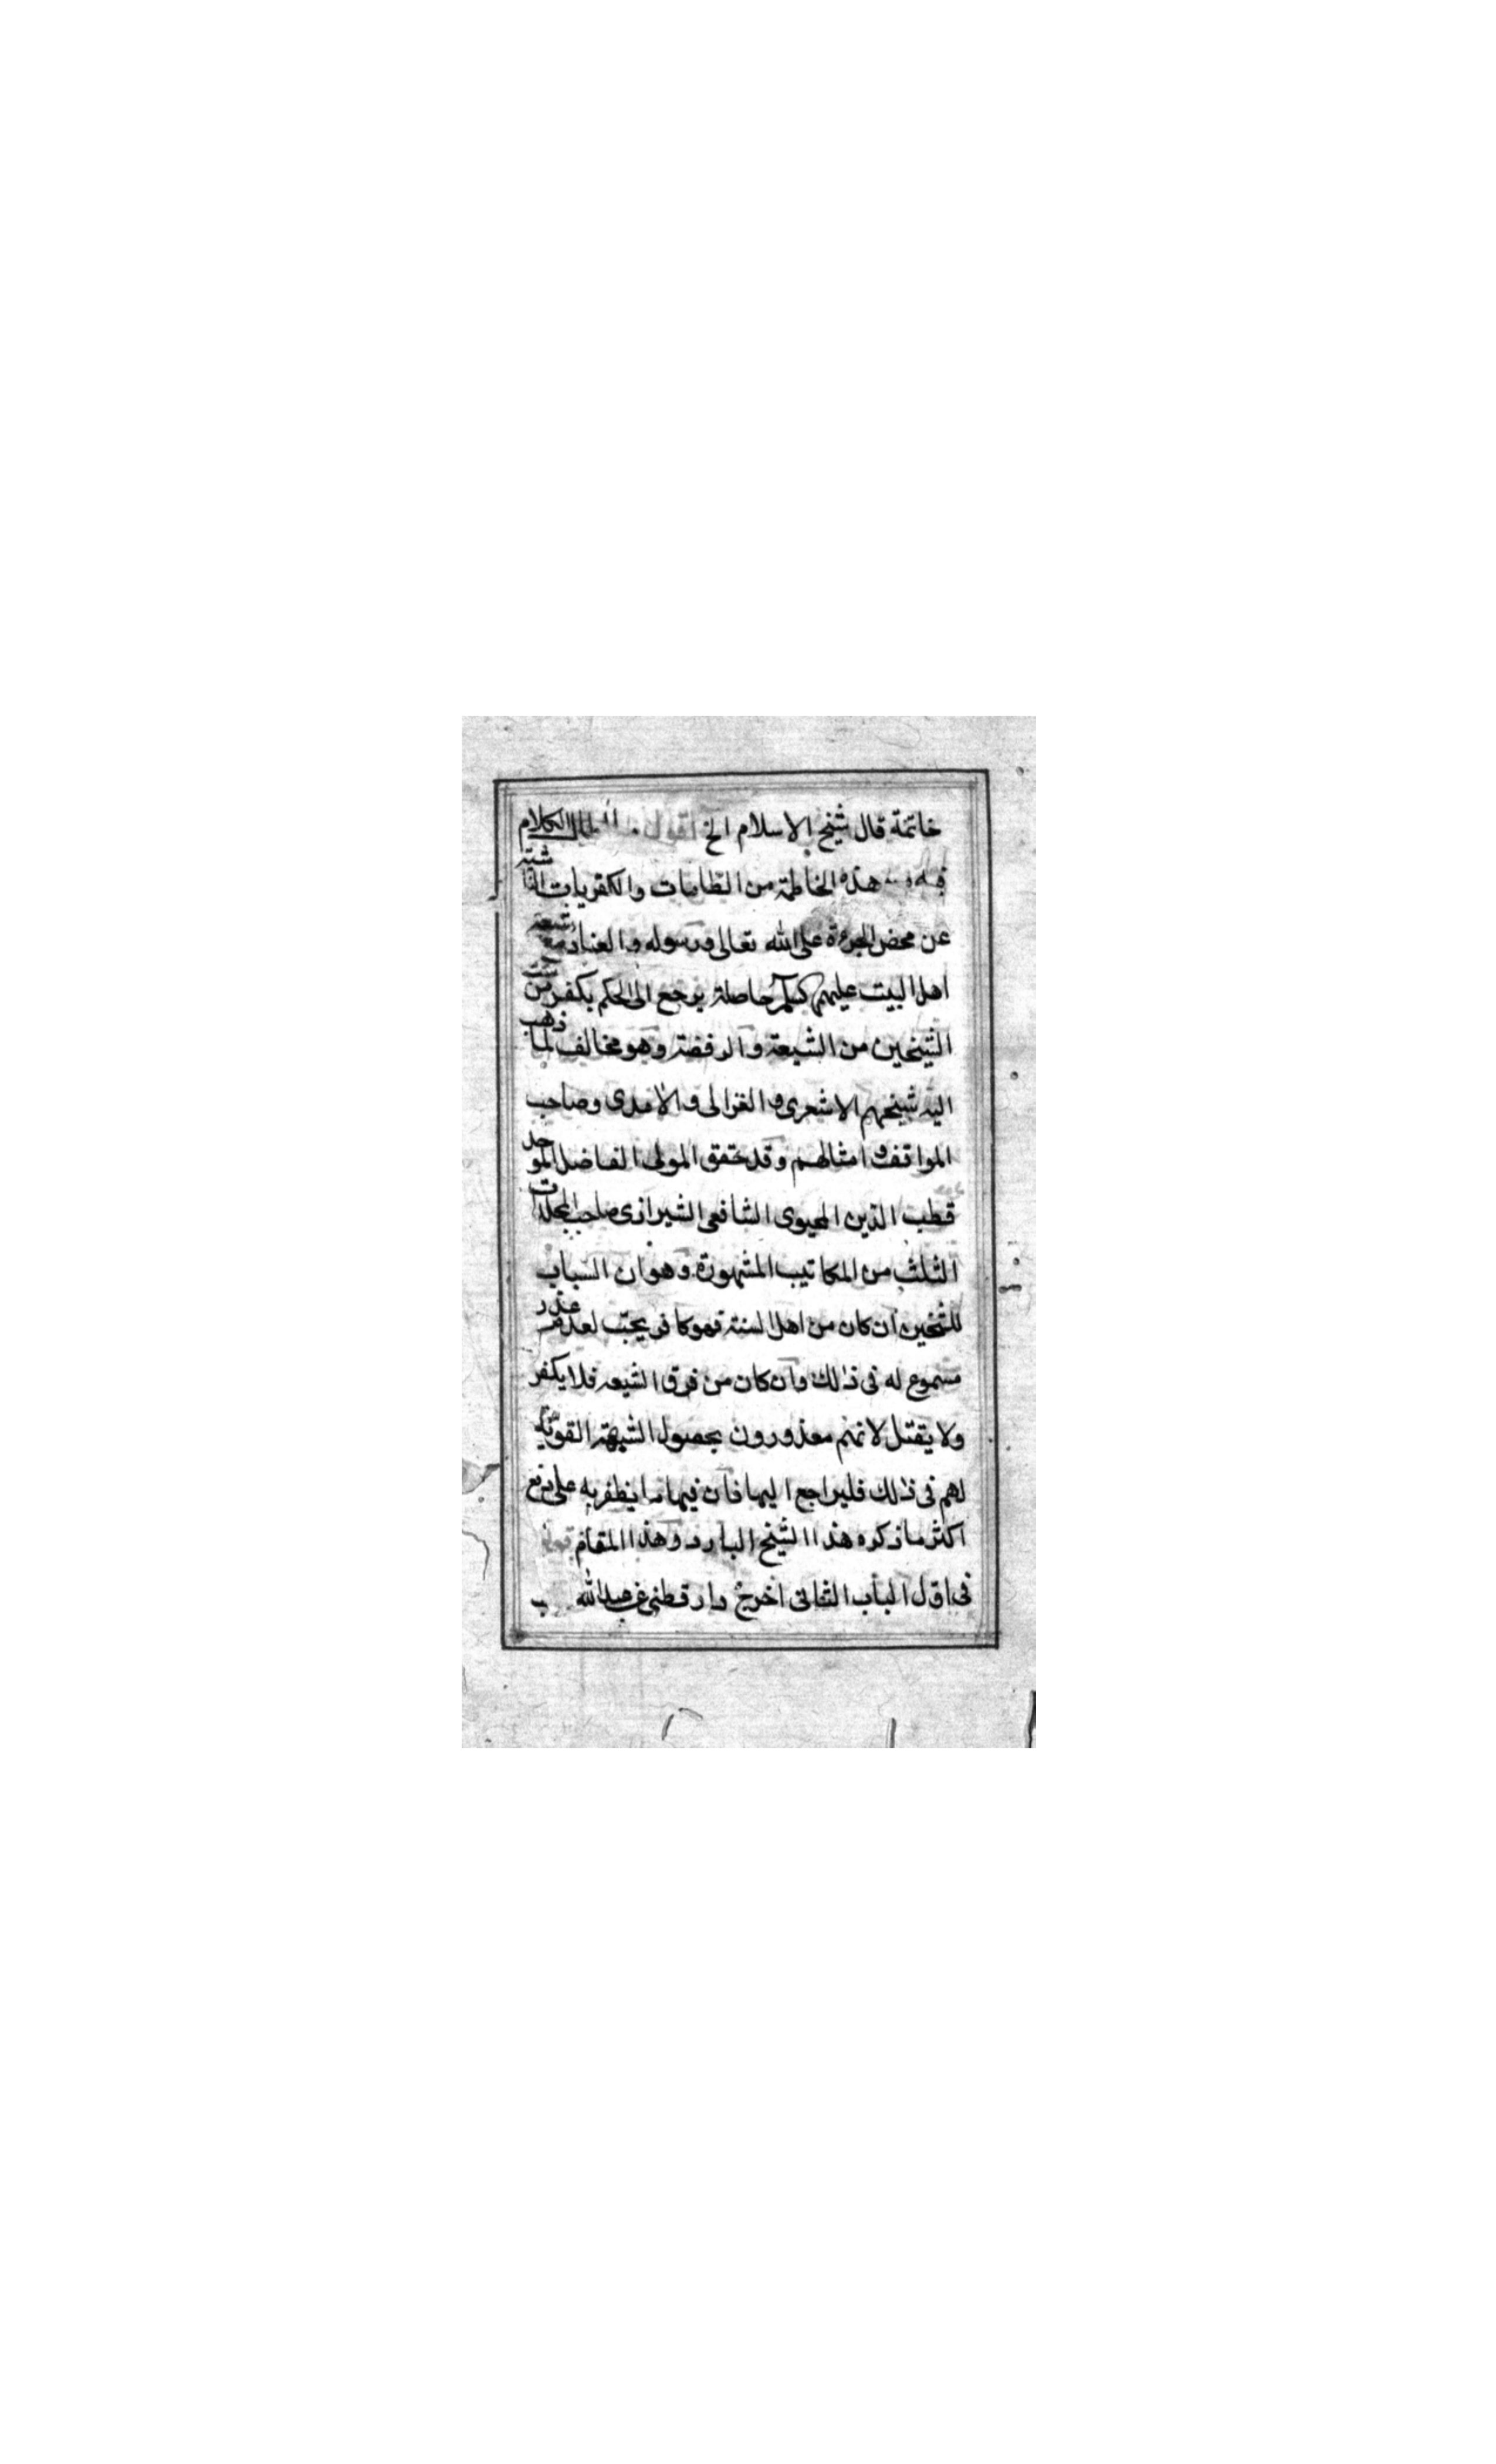 خاتمة قال شيخ الاسلام الخ اقول الكلام
هذه الخاطمة من الطامات والكفريات الناشئة
عن محض الجرءة على الله تعالى ورسوله والعناد شيعة
اهل البيت عليهم حاصلة يرجع الى الحكم بكفر من سب
الشيخين من الشيعة والرفضة وهو مخالف لما ذهب
اليه شيخهم الاشعرى والغزالى والامدى وصاحب
المواقف وامثالهم وقد حقق المولى الفاضل الموحد
قطب الدين المحيوى الشافعى الشيرازى صاحب المجلدات
الثلث من المكاتيب المشهورة وهو ان السباب
للشيخين ان كان من اهل السنة فهو كافر يجب لعدم عذر
مسموع له فى ذلك وان كان من فرق الشيعه فلا يكفر
ولا يقتل لانهم معذورون بحصول الشبهة القوية
لهم فى ذلك فليراجع اليها فان فيها ما يظفر به على دفع
اكثر ما ذكره هذا الشيخ البارد وهذا المقام قوله
فى اول الباب الثانى اخرج دارقطنى عن عبدالله ب